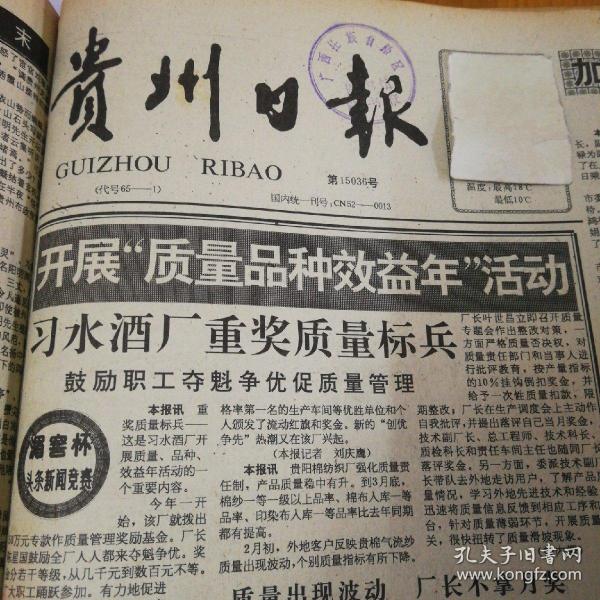 貴州日報
GUIZHOU RIBAO
（代号65——1）
第15036号
国内统一刊号：CN52——0013
温度：最高18℃
最低10℃
加
开展“质量品种效益年”活动
习水酒厂重奖质量标兵
鼓励职工夺魁争优促质量管理
湄窖杯
头条新闻竞赛
本报讯 重
奖质量标兵——
这是习水酒厂开
展质量、品种、
效益年活动的一
个重要内容。
今年一开
始，该厂就拨出
万元专款作质量管理奖励基金。厂长
星国鼓励全厂人人都来夺魁争优。奖
分若干等级，从几千元到数百元不等。
大职工踊跃参加。有力地促进
格率第一名的生产车间等优胜单位和个
人颁发了流动红旗和奖金。新的“创优
争先”热潮又在该厂兴起。
（本报记者 刘庆鹰）
本报讯 贵阳棉纺织厂强化质量责
任制，产品质量稳中有升。到3月底，
棉纱一等一级以上品率、棉布入库一等
品率、印染布入库一等品率比去年同期
都有提高。
2月初，外地客户反映贵棉气流纱
质量出现波动，个别质量指标有所下降。
厂长叶世昌立即召开质量
专题会作出整改对策，一
方面严格质量否决权，对
质量责任部门和当事人进
行批评教育，按产量指标
的10％挂钩倒扣奖金，并
给予一次性质量扣款，限
期整改；厂长在生产调度会上主动作
自我批评，并提出落评自己当月奖金，
技术副厂长、总工程师、技术科长、
质检科长和责任车间主任也随同厂长
落评奖金。另一方面，委派技术副厂
长带队去外地走访用户，了解产品质
量情况，学习外地先进技术和经验
迅速将质量信息反馈到相应工序和
台，针对质量薄弱环节，开展质量
关，很快扭转了质量滑坡现象。
质量出现波动 厂长不拿月奖
孔夫子旧书网
www.kongfz.com